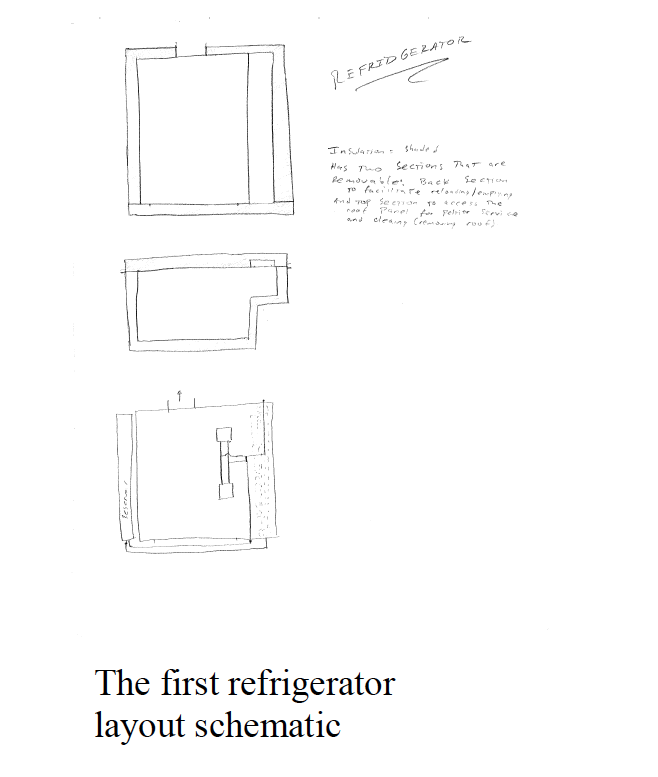 REFRIDGERATOR
Insulation = shaded
Has Two Sections That are
Removable; Back Section
To facilitate reloading/emptying
And top Section to access the
roof Panel for Peltier Service
and cleaning (removing roof)
Reservoir
The first refrigerator
layout schematic